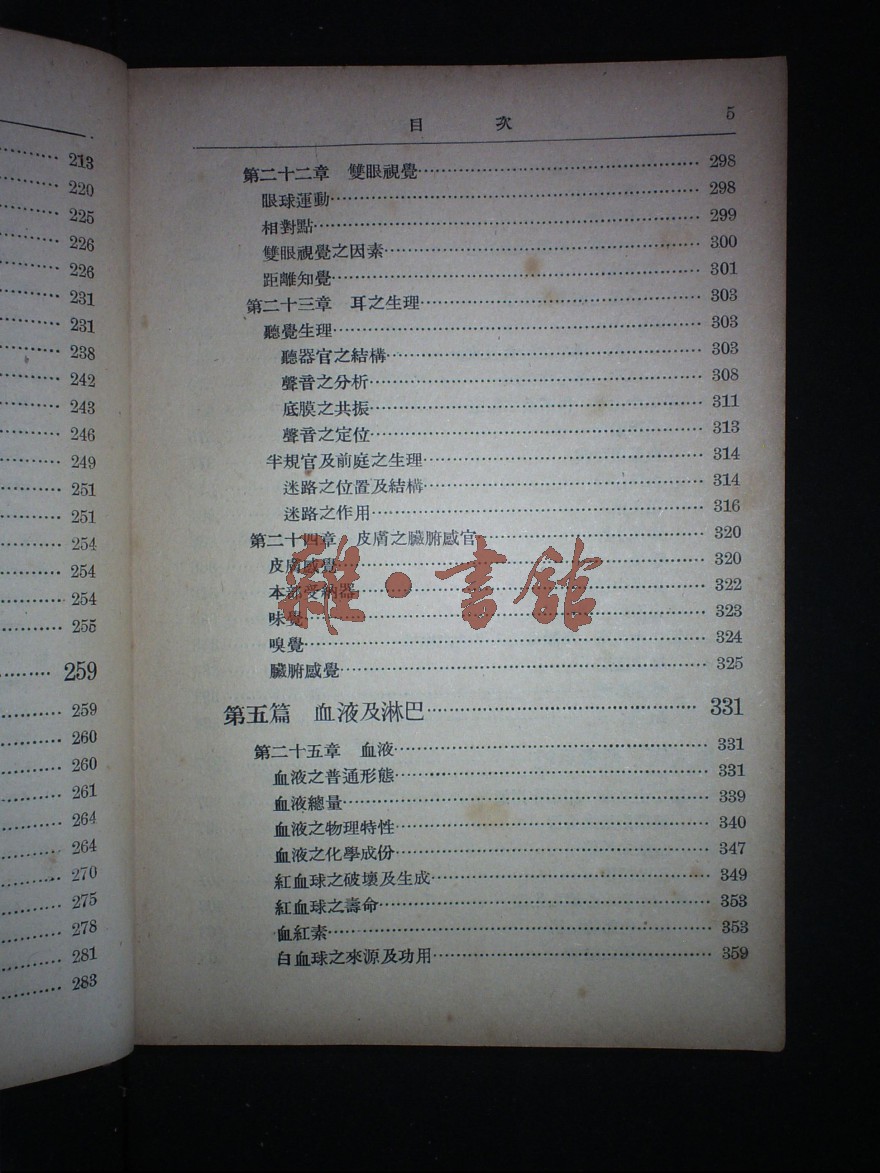 213
220
225
226
226
231
231
238
242
243
246
249
251
251
254
254
254
255
259
259
260
260
261
264
264
270
275
278
281
283
目 次 5
第二十二章 雙眼視覺 298
眼球運動 298
相對點 299
雙眼視覺之因素 300
距離知覺 301
第二十三章 耳之生理 303
聽覺生理 303
聽器官之結構 303
聲音之分析 308
底膜之共振 311
聲音之定位 313
半規官及前庭之生理 314
迷路之位置及結構 314
迷路之作用 316
第二十四章 皮膚之臟腑感官 320
皮膚感覺 320
本部受納器 322
味覺 323
嗅覺 324
臟腑感覺 325
第五篇 血液及淋巴 331
第二十五章 血液 331
血液之普通形態 331
血液總量 339
血液之物理特性 340
血液之化學成份 347
紅血球之破壞及生成 349
紅血球之壽命 353
血紅素 353
白血球之來源及功用 359
雜·書館